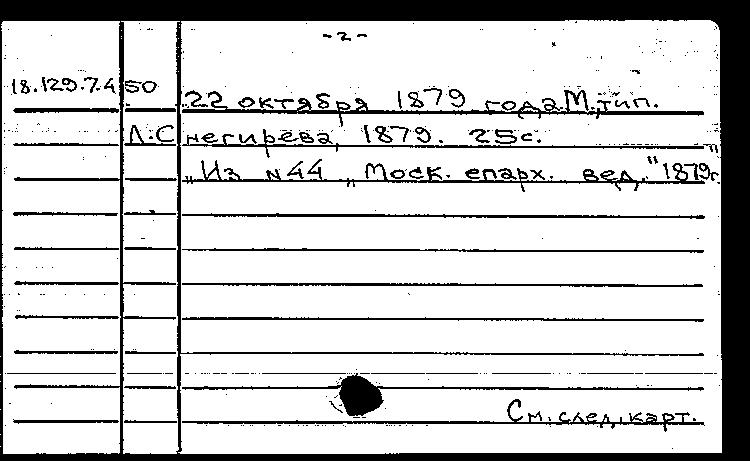 -2-
18.129.7.450 22 октября 1879 года М., тип.
Л. Снегирева, 1879. 25с.
„Из N 44 „Моск. епарх. вед." 1879г."
См. след. карт.